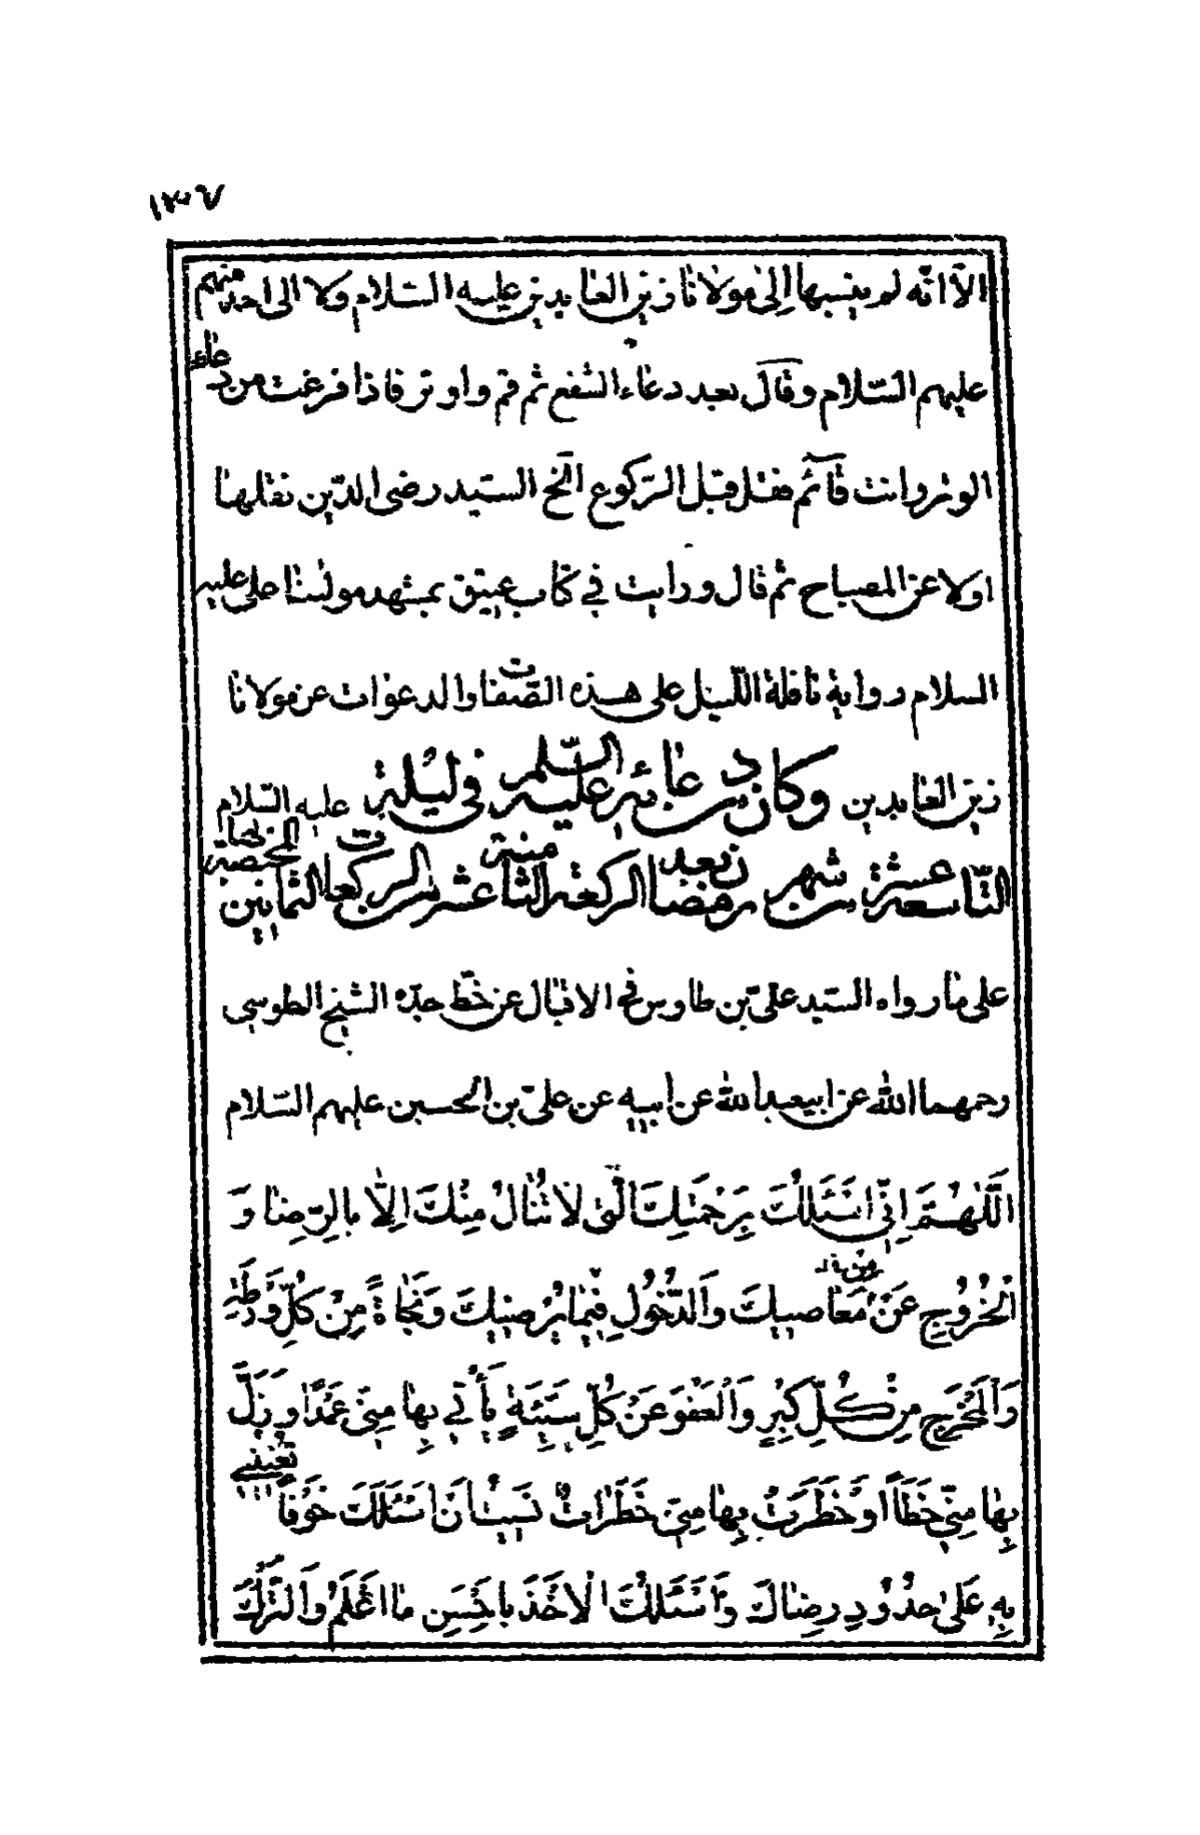 ١٣٠٦٧
الّا انّه لم ينسبها اِلىٰ مولانا زين العابدين عليه السّلام ولا الى احد منهم
عليهم السّلام وقال بعد دعاء الشفع ثم قم واوتر فاذا فرغت من دعاء
الوتر وانت قآئم فقل قبل الرّكوع الخ السيّد رضى الدّين نقلها
اولا عن المصباح ثم قال ورايت في كتاب عتيق بمشهد مولٰنٰا على عليه
السلام رواية نافلة اللّيل على هذه الصّفات والدعوات عن مولانا
زين العابدين عليه السّلام وكان من دعائه عليه السّلم في ليلة
التّاسعة عشرة من شهر رمضان بعد الركعة الثامنة عشر من الركعات الثمانين المختصة بها
على ما رواه السيّد علىّ بن طاوس في الاقبال عن خطّ جدّه الشيخ الطوسي
رحمهما اللّٰه عن ابيعبداللّٰه عن ابيه عن علىّ بن الحسين عليهم السّلام
اَللّٰهُمَّ اِنِّى اَسْئَلُكَ بِرَحْمَتِكَ الَّتى لاٰ تُنٰالُ مِنْكَ اِلاّٰ بالرِّضٰا وَ
الْخُرُوجِ عَنْ مَعٰاصيكَ وَالدُّخُولِ فيمٰا يُرْضيكَ وَنَجٰاةً مِنْ كُلِّ وَرْطَةٍ
وَالْمَخْرَجِ مِنْ كُلِّ كَبيرٍ وَالْعَفْوَ عَنْ كُلِّ سَيِّئَةٍ يَأْتي بِهٰا مِنّى عَمْدٌ اَو زَلَّ
بِهٰا مِنّى خَطَأٌ اَوْ خَطَرَتْ بِهٰا مِنّى خَطَرٰاتُ نِسْيٰانٍ اَسْئَلُكَ خَوْفاً تُعينُنى
بِهِ عَلىٰ حُدُودِ رِضٰاكَ وَاَسْئَلُكَ الْاَخْذَ بِاَحْسَنِ مٰا اَعْلَمُ وَالتَّرْكَ